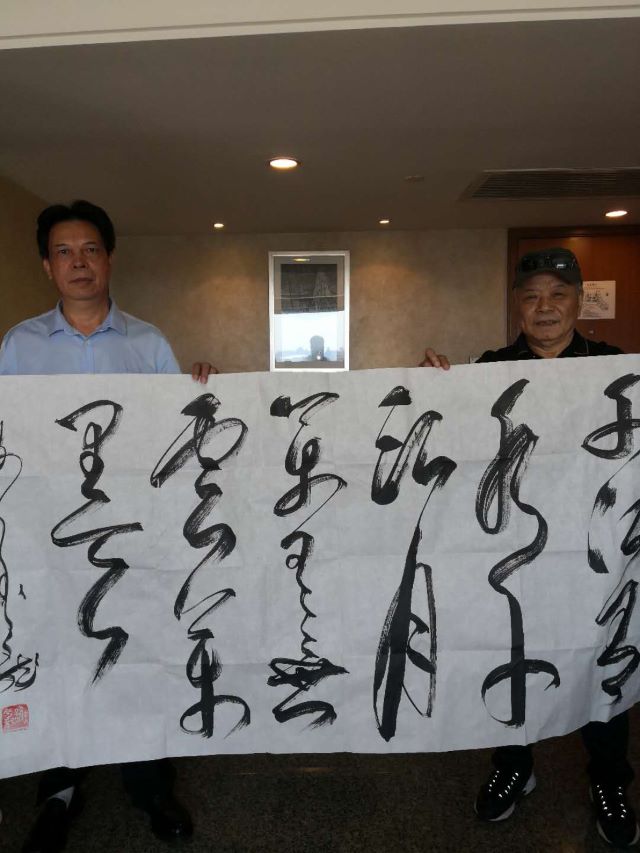 千江有
水千
江月
萬里無
雲萬
里天